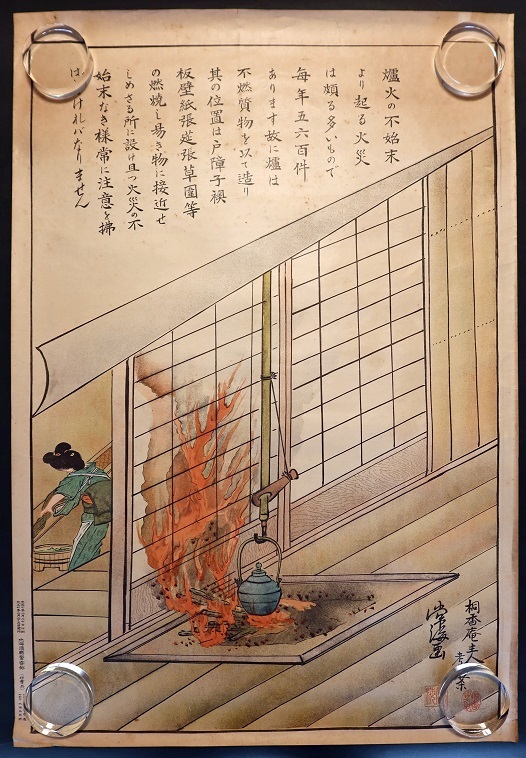 爐火の不始末
より起る火災
は頗る多いもので
毎年五六百件
あります故に爐は
不燃質物を以て造り
其の位置は戸障子襖
板壁紙張莚張草圍等
の燃焼し易き物に接近せ
しめざる所に設け且つ火災の不
始末なき様常に注意を拂
はなければなりません
桐香庵主人
考案
常海画